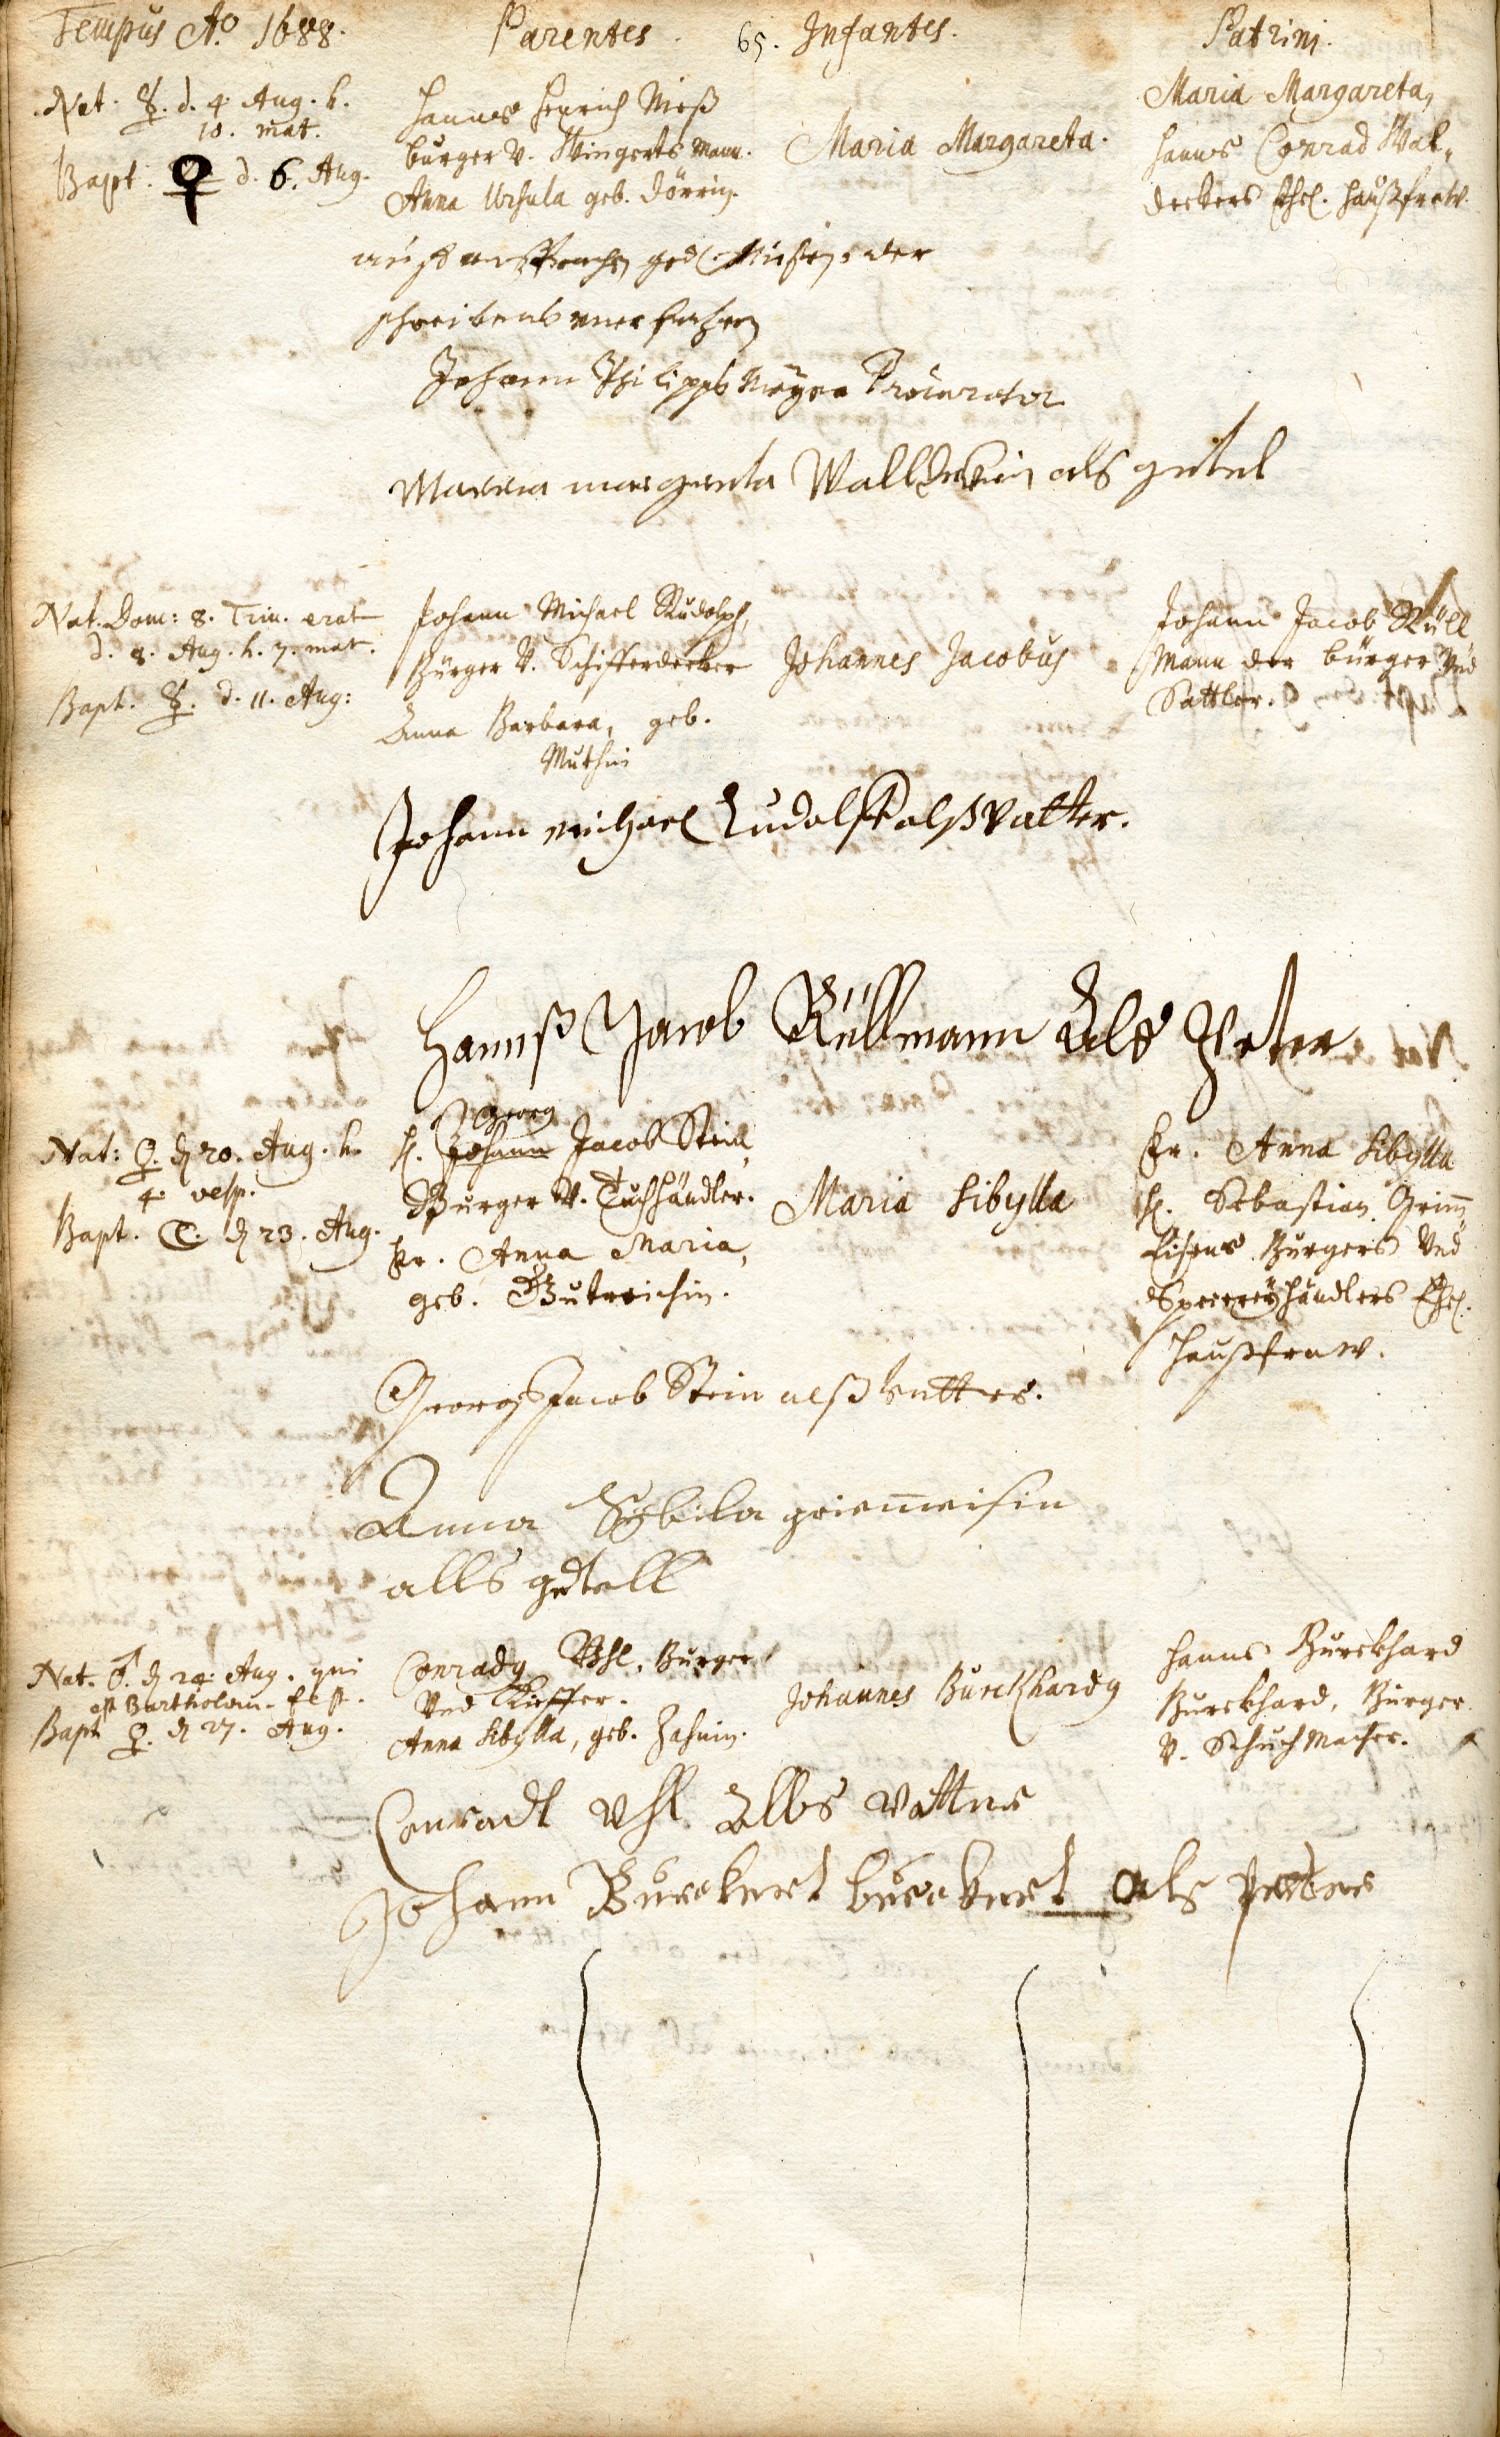 Tempus Aö 1688. Parentes. 65. Infantes. Patrini.
Nat. ☿. d. 4 Aug. h.
10. mat.
Bapt. ♀ d. 6. Aug.
Hannes Henrich Mieß
burger v. Wingerts Mann.
Anna Ursula geb. Dörrin.
Maria Margareta.
Maria Margareta,
Hanns Conrad Wal„
deckers Ehel. Haußfraw.
der
schreibens unerfahren
Johann Philipps Meyer Procurator
Mareia margreta als getel
Nat. Dom: 8. Trin. erat
d. 8. Aug. h. 7. mat.
Bapt. ☿. d. 11. Aug:
Johann Michael Rudolph,
Bürger V. Schifferdecker
Anna Barbara, geb.
Muthin
Johannes Jacobus
Johann Jacob Rüll
Mann der bürger Und
Sattler.
Johann michael Rudolff alß Vatter.
Hannß Jacob Rüllmann Alß Petter
Nat: ♀. d 20. Aug. h.
4. vesp.
Bapt. ☾. d 23. Aug.
Georg
H. Johann Jacob Stein
Burger V. Tuchhändler.
Fr. Anna Maria,
geb. Gutreichin.
Maria Sibylla
Fr. Anna Sibylla
H. Sebastian Grim̄„
Eisens Burgers Und
Specereyhändlers Ehel.
Haußfraw.
Georg Jacob Stein alß Vatter.
Anna Sybila griem̄eisin
alls gettell
Nat. ♂. d 24. Aug. qui
est Bartholom. fest.
Bapt ♀. d 27. Aug.
Conrady Vhl, Burger
Und Kieffer.
Anna Sibylla, geb. Zahnin.
Johannes Burckhardy
Hanns Burckhard
Burckhard, Burger
V. Schuch Macher.
Conradt Vhl Alls Vatter
Johann Burckert burckert als petter